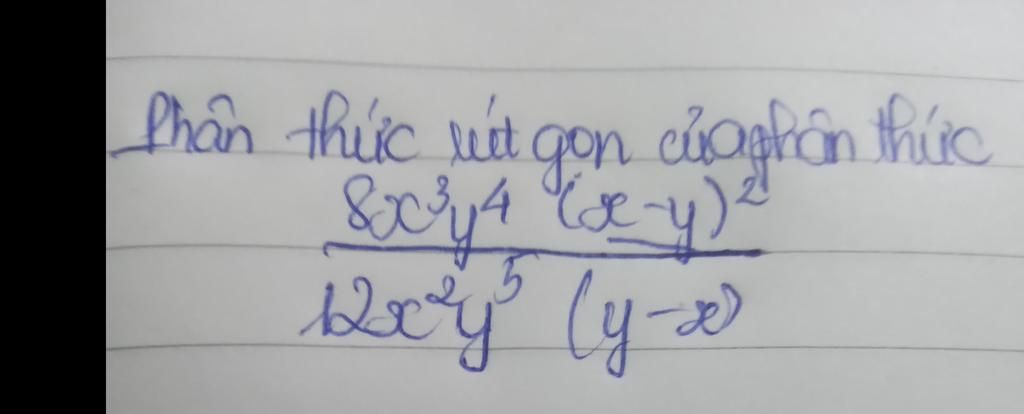 Phân thức rút gọn của phân thức
8x³y⁴ (x-y)²
12x²y⁵ (y-x)